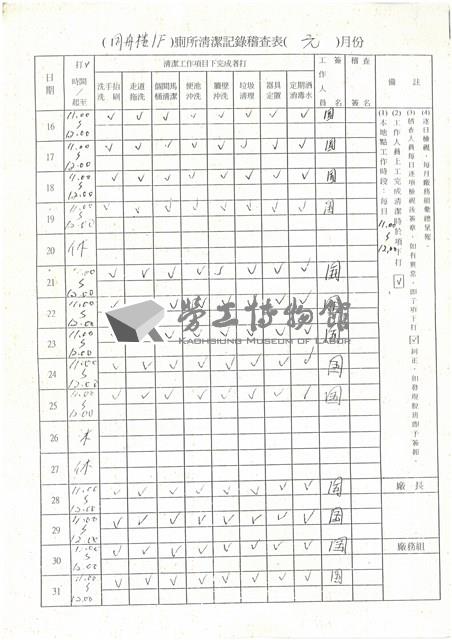 (同舟樓1F)廁所清潔記錄稽查表(元)月份
日期 打ˇ時間/起至 清潔工作項目下完成者打 工作人員 簽名 稽查簽名 備註
洗手抬刷 走道拖洗 個間馬桶清潔 便池沖洗 牆壁沖洗 垃圾清理 器具定置 定期洒消毒水
16 11.00 ∫ 12.00 ✓ ✓ ✓ ✓ ✓ ✓ ✓ ✓ 國
17 11.00 ∫ 12.00 ✓ ✓ ✓ ✓ ✓ ✓ ✓ ✓ 國
18 11.00 ∫ 12.00 ✓ ✓ ✓ ✓ ✓ ✓ ✓ ✓ 國
19 11.00 ∫ 12.00 ✓ ✓ ✓ ✓ ✓ ✓ ✓ ✓ 國
20 休
21 11.00 ∫ 12.00 ✓ ✓ ✓ ✓ ✓ ✓ ✓ ✓ 國
22 11.00 ∫ 12.00 ✓ ✓ ✓ ✓ ✓ ✓ ✓ ✓ 國
23 11.00 ∫ 12.00 ✓ ✓ ✓ ✓ ✓ ✓ ✓ ✓ 國
24 11.00 ∫ 12.00 ✓ ✓ ✓ ✓ ✓ ✓ ✓ ✓ 國
25 11.00 ∫ 12.00 ✓ ✓ ✓ ✓ ✓ ✓ ✓ ✓ 國
26 休
27 休
28 11.00 ∫ 12.00 ✓ ✓ ✓ ✓ ✓ ✓ ✓ ✓ 國
29 11.00 ∫ 12.00 ✓ ✓ ✓ ✓ ✓ ✓ ✓ ✓ 國
30 11.00 ∫ 12.00 ✓ ✓ ✓ ✓ ✓ ✓ ✓ ✓ 國
31 11.00 ∫ 12.00 ✓ ✓ ✓ ✓ ✓ ✓ ✓ ✓ 國
(4)逐日檢視，每月廠務組彙總呈報。
(3)稽查人員每日逐項檢視後簽章，如有異常，即予項下打✓糾正，如發現脫班即予簽報。
(2)工作人員上工完成清潔時於項下打✓
(1)本地點工作時段：每日 11.00 ∫ 12.00
廠長
廠務組
勞工博物館
KAOHSIUNG MUSEUM OF LABOR